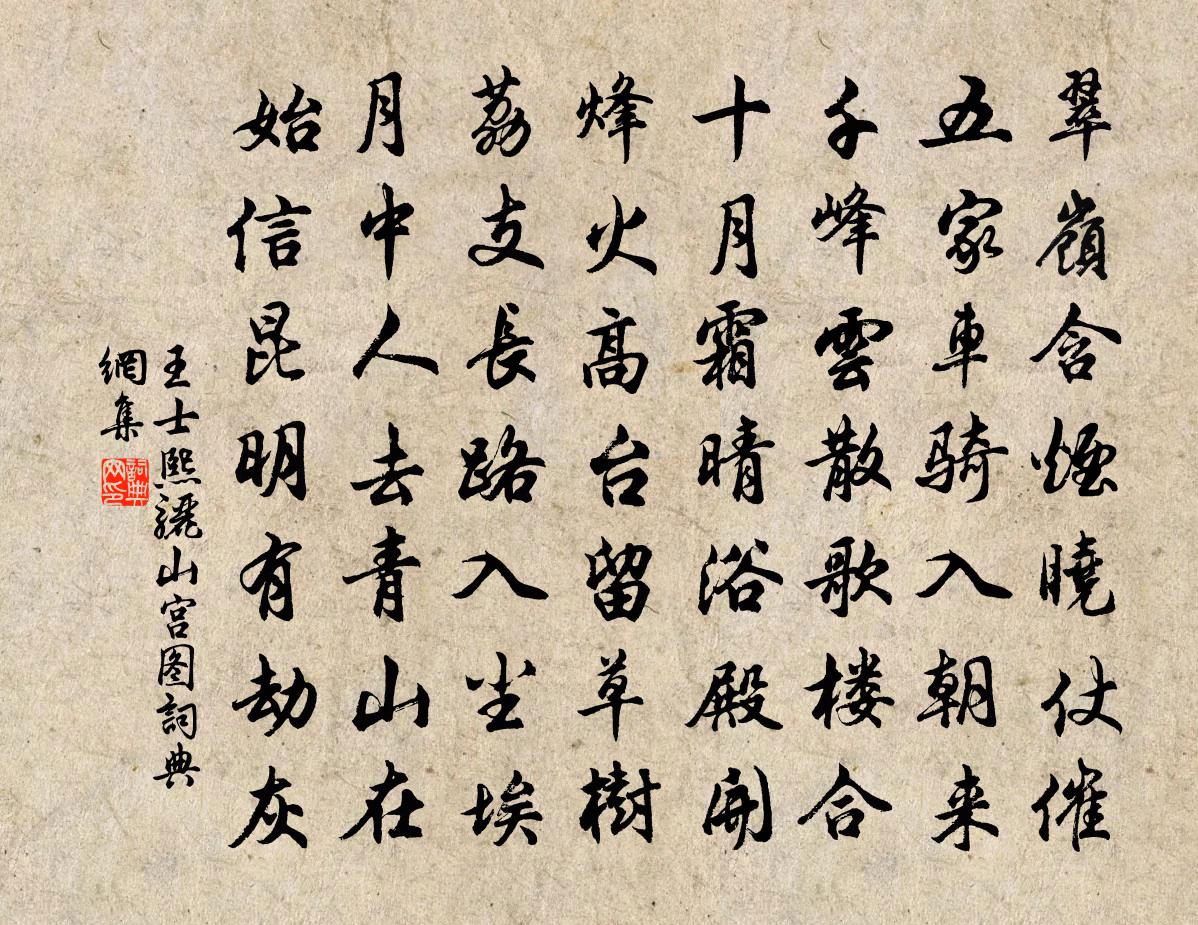 翠嶺含煙曉仗催
五家車騎入朝来
千峰雲散歌楼合
十月霜晴浴殿開
烽火高台留草樹
荔支長路入尘埃
月中人去青山在
始信昆明有劫灰
王士熙驪山宫图詞典
網集
詞典
网印